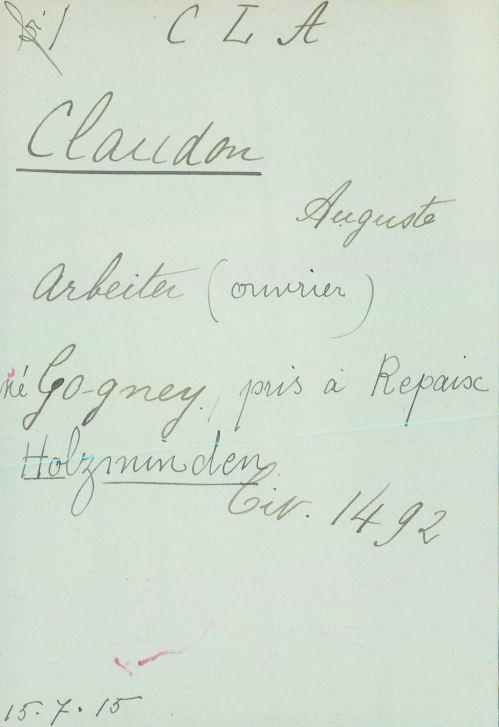 C L A
Claudon
Auguste
Arbeiter (ouvrier)
né Gogney, pris à Repaix
Holzminden
Civ. 1492
15.7.15